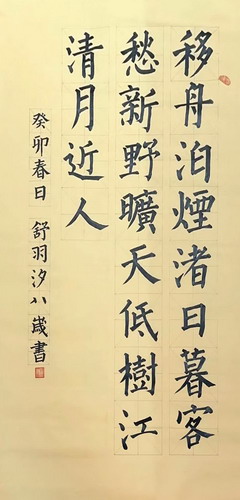 移舟泊煙渚日暮客
愁新野曠天低樹江
清月近人
癸卯春日 舒羽汐八歲書